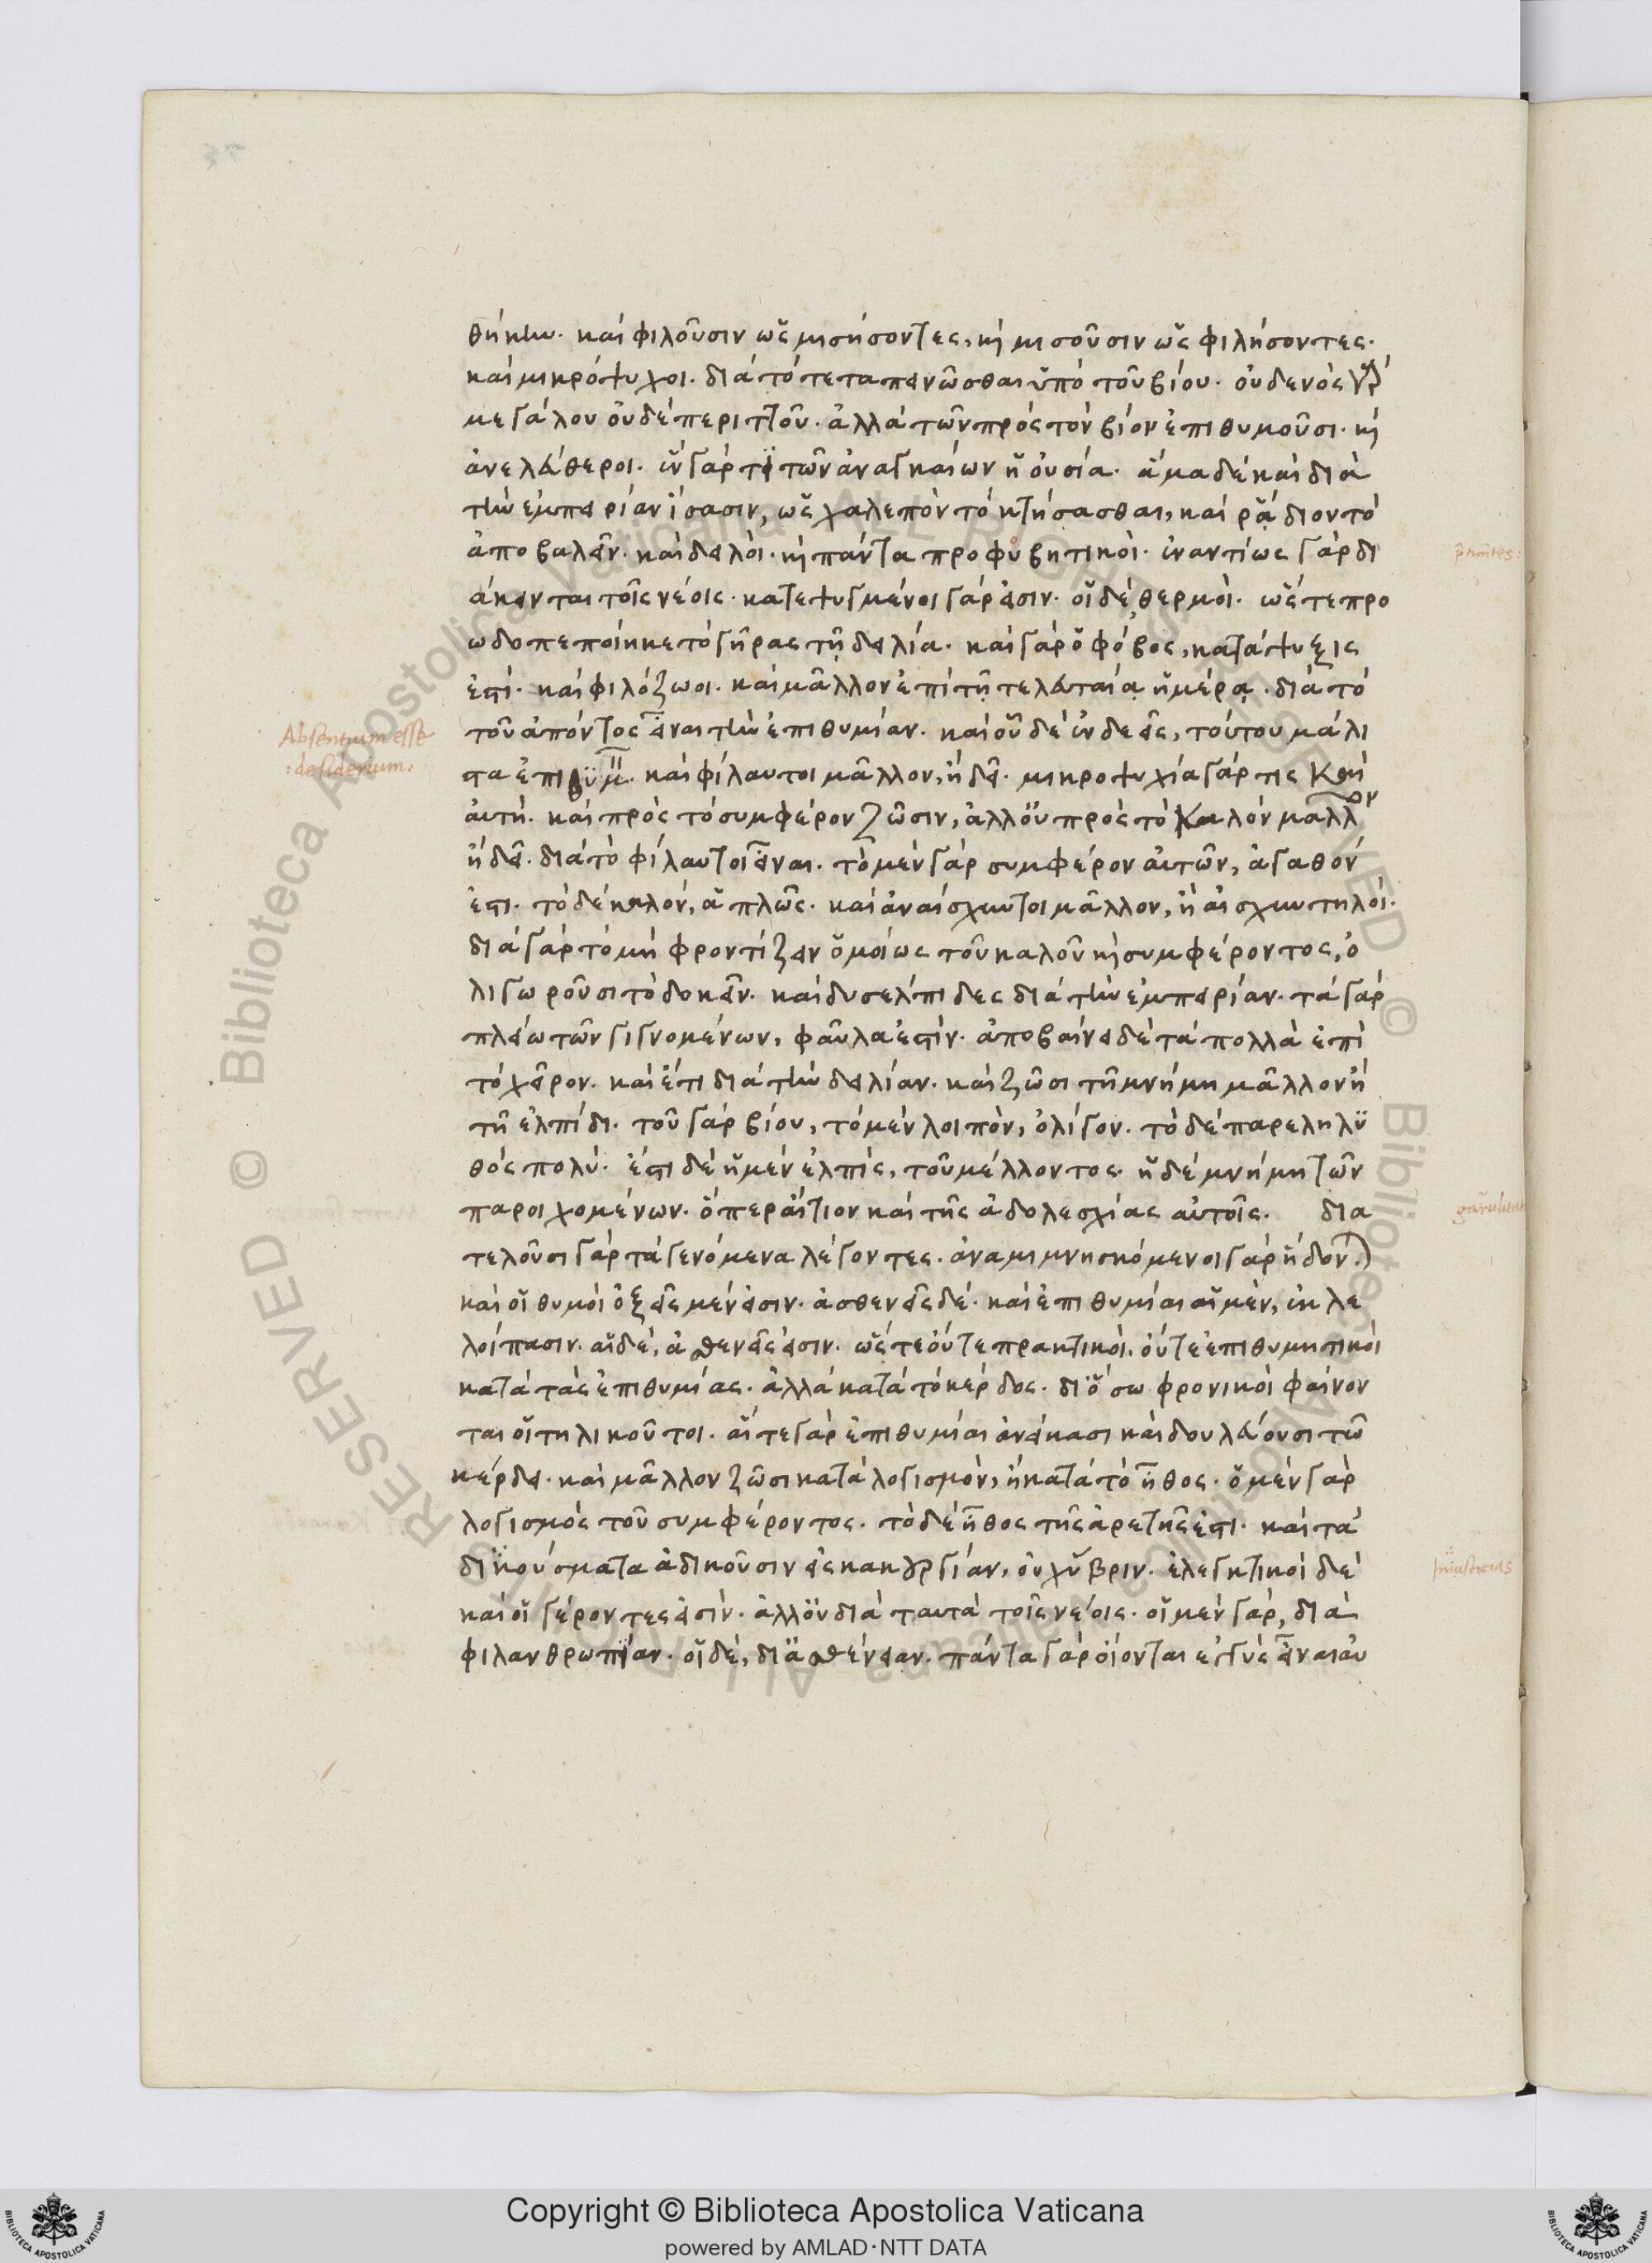 θήκην. καὶ φιλοῦσιν ὡς μισήσοντες, κ̀ μισοῦσιν ὡς φιλήσοντες.
καὶ μικρόψυχοι. διὰ τό τεταπεινῶσθαι ὑπὸ τοῦ βίου. οὐδενὸς γὰρ
μεγάλου οὐδὲ περιττοῦ. ἀλλὰ τῶν πρὸς τὸν βίον ἐπιθυμοῦσι. κ̀
ἀνελεύθεροι. ἓν γάρ τι τῶν ἀναγκαίων ἡ οὐσία. ἅμα δὲ καὶ διὰ
τὴν ἐμπειρίαν ἴσασιν, ὡς χαλεπὸν τὸ κτήσασθαι, καὶ ῥᾴδιον τὸ
ἀποβαλεῖν. καὶ δειλοὶ. κ̀ πάντα προφοβητικοὶ. ἐναντίως γὰρ δι
άκεινται τοῖς νέοις. κατεψυγμένοι γάρ εἰσιν. οἱ δὲ, θερμοὶ. ὥστε προ
ωδοπεποίηκε τὸ γῆρας τῇ δειλίᾳ. καὶ γὰρ ὁ φόβος, κατάψυξις
ἐστί. καὶ φιλόζωοι. καὶ μᾶλλον ἐπὶ τῇ τελευταίᾳ ἡμέρᾳ. διὰ τὸ
τοῦ ἀπόντος εἶναι τὴν ἐπιθυμίαν. καὶ οὗ δὲ ἐνδεεῖς, τούτου μάλι
στα ἐπιθυμ. καὶ φίλαυτοι μᾶλλον, ἢ δεῖ. μικροψυχία γάρ τις καὶ
αὐτή. καὶ πρὸς τὸ συμφέρον ζῶσιν, ἀλλ' οὐ πρὸς τὸ καλὸν μᾶλλον
ἢ δεῖ. διὰ τὸ φίλαυτοι εἶναι. τὸ μὲν γὰρ συμφέρον αὐτῶν, ἀγαθόν
ἐστι. τὸ δὲ καλόν, ἁπλῶς. καὶ ἀναίσχυντοι μᾶλλον, ἢ αἰσχυντηλοί.
διὰ γὰρ τὸ μὴ φροντίζειν ὁμοίως τοῦ καλοῦ κ̀ συμφέροντος, ὀ
λιγωροῦσι τὸ δοκεῖν. καὶ δυσελπιδες διὰ τὴν ἐμπειρίαν. τὰ γὰρ
πλείω τῶν γιγνομένων, φαῦλα ἐστίν. ἀποβαίνει δὲ τὰ πολλὰ ἐπὶ
τὸ χεῖρον. καὶ ἔτι διὰ τὴν δειλίαν. καὶ ζῶσι τῇ μνήμῃ μᾶλλον ἢ
τῇ ἐλπίδι. τοῦ γὰρ βίου, τὸ μὲν λοιπὸν, ὀλίγον. τὸ δὲ παρεληλυ
θός πολύ. ἔστι δὲ ἡ μὲν ἐλπίς, τοῦ μέλλοντος. ἡ δὲ μνήμη τῶν
παροιχομένων. ὅπερ αἴτιον καὶ τῆς ἀδολεσχίας αὐτοῖς. δια
τελοῦσι γὰρ τὰ γενόμενα λέγοντες. ἀναμιμνησκόμενοι γὰρ ἥδον)
καὶ οἱ θυμοὶ ὀξεῖς μέν εἰσιν. ἀσθενεῖς δέ. καὶ ἐπιθυμίαι αἱ μὲν, ἐκλε
λοίπασιν. αἱ δὲ, ἀσθενεῖς εἰσιν. ὥστε οὔτε πρακτικοὶ. οὔτε ἐπιθυμητικοὶ
κατὰ τὰς ἐπιθυμίας. ἀλλὰ κατὰ τὸ κέρδος. διὸ σωφρονικοὶ φαίνον
ται οἱ τηλικοῦτοι. αἵ τε γὰρ ἐπιθυμίαι ἀνείκασι καὶ δουλεύουσι τῷ
κέρδει. καὶ μᾶλλον ζῶσι κατὰ λογισμὸν, ἢ κατὰ τὸ ἦθος. ὁ μὲν γὰρ
λογισμὸς τοῦ συμφέροντος. τὸ δὲ ἦθος τῆς ἀρετῆς ἐστι. καὶ τὰ
δικούσματα ἀδικοῦσιν εἰς κακουργίαν, οὐχ ὕβριν. ἐλεγκτικοὶ δὲ
καὶ οἱ γέροντες εἰσὶν. ἀλλ' οὐ διὰ ταυτὰ τοῖς νέοις. οἱ μὲν γὰρ, διὰ
φιλανθρωπίαν. οἱ δὲ, δι' ἀσθένειαν. πάντα γὰρ οἴονται ἐγγὺς εἶναι αὐ
Absentium esse
:desiderium:
Copyright © Biblioteca Apostolica Vaticana
powered by AMLAD·NTT DATA